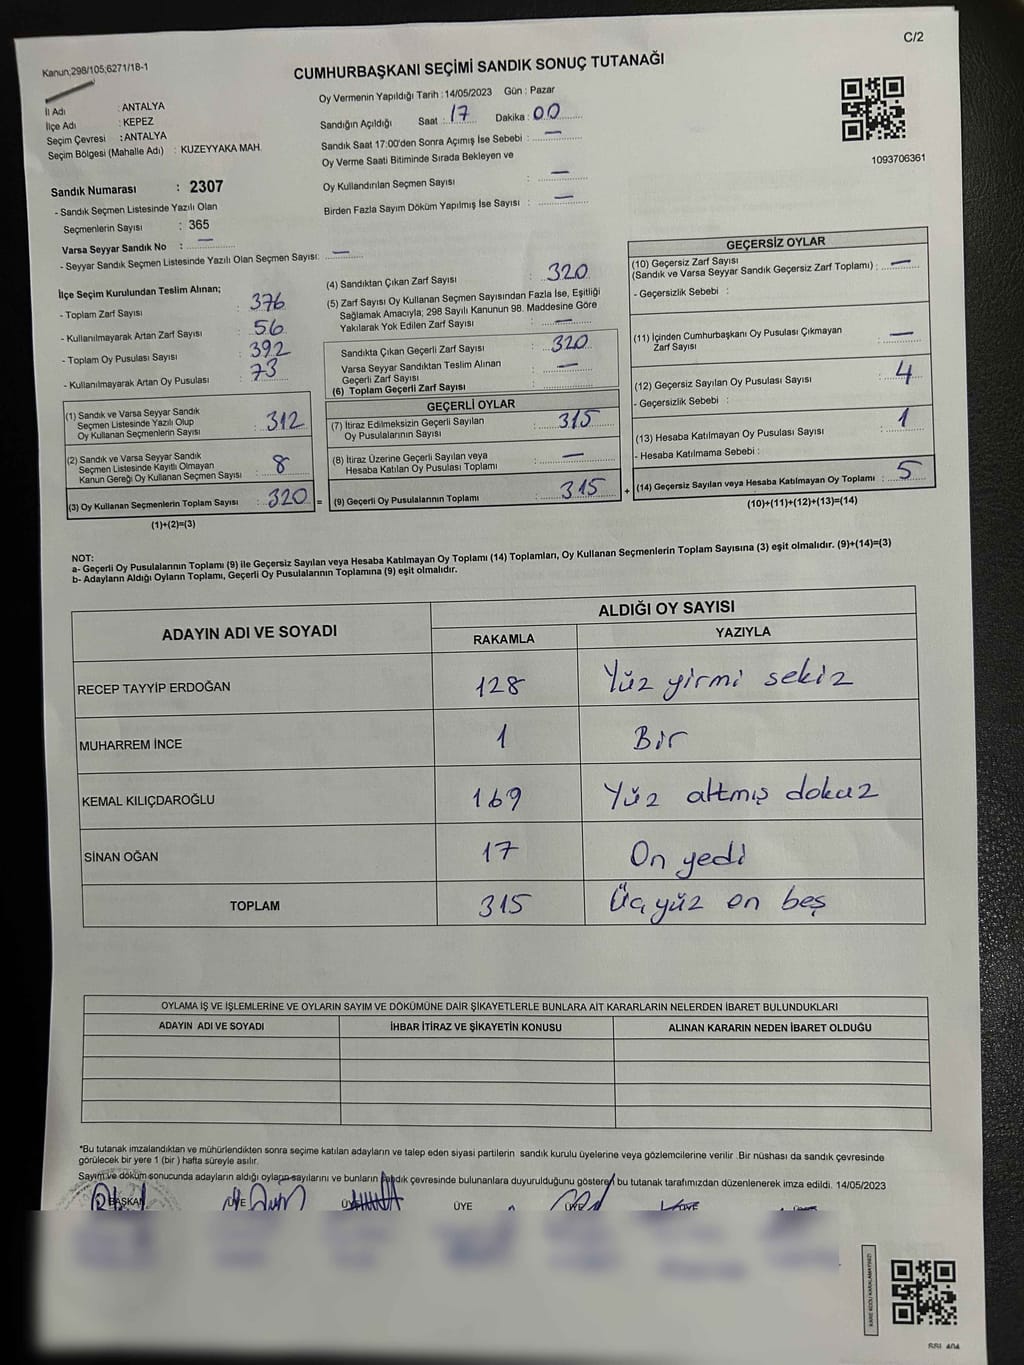 C/2
Kanun;298/105;6271/18-1
CUMHURBAŞKANI SEÇİMİ SANDIK SONUÇ TUTANAĞI
İl Adı : ANTALYA
İlçe Adı : KEPEZ
Seçim Çevresi : ANTALYA
Seçim Bölgesi (Mahalle Adı) : KUZEYYAKA MAH.
Sandık Numarası : 2307
- Sandık Seçmen Listesinde Yazılı Olan
Seçmenlerin Sayısı : 365
Varsa Seyyar Sandık No : —
- Seyyar Sandık Seçmen Listesinde Yazılı Olan Seçmen Sayısı: —
Oy Vermenin Yapıldığı Tarih : 14/05/2023 Gün : Pazar
Sandığın Açıldığı Saat : 17 Dakika : 00
Sandık Saat 17:00'den Sonra Açımış İse Sebebi : —
Oy Verme Saati Bitiminde Sırada Bekleyen ve
Oy Kullandırılan Seçmen Sayısı : —
Birden Fazla Sayım Döküm Yapılmış İse Sayısı : —
1093706361
İlçe Seçim Kurulundan Teslim Alınan;
- Toplam Zarf Sayısı : 376
- Kullanılmayarak Artan Zarf Sayısı : 56
- Toplam Oy Pusulası Sayısı : 392
- Kullanılmayarak Artan Oy Pusulası : 73
(1) Sandık ve Varsa Seyyar Sandık
Seçmen Listesinde Yazılı Olup
Oy Kullanan Seçmenlerin Sayısı : 312
(2) Sandık ve Varsa Seyyar Sandık
Seçmen Listesinde Kayıtlı Olmayan
Kanun Gereği Oy Kullanan Seçmen Sayısı : 8
(3) Oy Kullanan Seçmenlerin Toplam Sayısı : 320 =
(1)+(2)=(3)
(4) Sandıktan Çıkan Zarf Sayısı : 320
(5) Zarf Sayısı Oy Kullanan Seçmen Sayısından Fazla İse, Eşitliği
Sağlamak Amacıyla; 298 Sayılı Kanunun 98. Maddesine Göre
Yakılarak Yok Edilen Zarf Sayısı : —
Sandıkta Çıkan Geçerli Zarf Sayısı : 320
Varsa Seyyar Sandıktan Teslim Alınan
Geçerli Zarf Sayısı : —
(6) Toplam Geçerli Zarf Sayısı :
GEÇERLİ OYLAR
(7) İtiraz Edilmeksizin Geçerli Sayılan
Oy Pusulalarının Sayısı : 315
(8) İtiraz Üzerine Geçerli Sayılan veya
Hesaba Katılan Oy Pusulası Toplamı : —
(9) Geçerli Oy Pusulalarının Toplamı : 315 +
GEÇERSİZ OYLAR
(10) Geçersiz Zarf Sayısı
(Sandık ve Varsa Seyyar Sandık Geçersiz Zarf Toplamı) : —
- Geçersizlik Sebebi :
(11) İçinden Cumhurbaşkanı Oy Pusulası Çıkmayan
Zarf Sayısı : —
(12) Geçersiz Sayılan Oy Pusulası Sayısı : 4
- Geçersizlik Sebebi :
(13) Hesaba Katılmayan Oy Pusulası Sayısı : 1
- Hesaba Katılmama Sebebi :
(14) Geçersiz Sayılan veya Hesaba Katılmayan Oy Toplamı : 5
(10)+(11)+(12)+(13)=(14)
NOT:
a- Geçerli Oy Pusulalarının Toplamı (9) ile Geçersiz Sayılan veya Hesaba Katılmayan Oy Toplamı (14) Toplamları, Oy Kullanan Seçmenlerin Toplam Sayısına (3) eşit olmalıdır. (9)+(14)=(3)
b- Adayların Aldığı Oyların Toplamı, Geçerli Oy Pusulalarının Toplamına (9) eşit olmalıdır.
ADAYIN ADI VE SOYADI ALDIĞI OY SAYISI
RAKAMLA YAZIYLA
RECEP TAYYİP ERDOĞAN 128 Yüz yirmi sekiz
MUHARREM İNCE 1 Bir
KEMAL KILIÇDAROĞLU 169 Yüz altmış dokuz
SİNAN OĞAN 17 On yedi
TOPLAM 315 Üçyüz on beş
OYLAMA İŞ VE İŞLEMLERİNE VE OYLARIN SAYIM VE DÖKÜMÜNE DAİR ŞİKAYETLERLE BUNLARA AİT KARARLARIN NELERDEN İBARET BULUNDUKLARI
ADAYIN ADI VE SOYADI İHBAR İTİRAZ VE ŞİKAYETİN KONUSU ALINAN KARARIN NEDEN İBARET OLDUĞU
*Bu tutanak imzalandıktan ve mühürlendikten sonra seçime katılan adayların ve talep eden siyasi partilerin sandık kurulu üyelerine veya gözlemcilerine verilir .Bir nüshası da sandık çevresinde
görülecek bir yere 1 (bir ) hafta süreyle asılır.
Sayım ve döküm sonucunda adayların aldığı oyların sayılarını ve bunların sandık çevresinde bulunanlara duyurulduğunu gösterer bu tutanak tarafımızdan düzenlenerek imza edildi. 14/05/2023
BAŞKAN ÜYE ÜYE ÜYE ÜYE ÜYE ÜYE